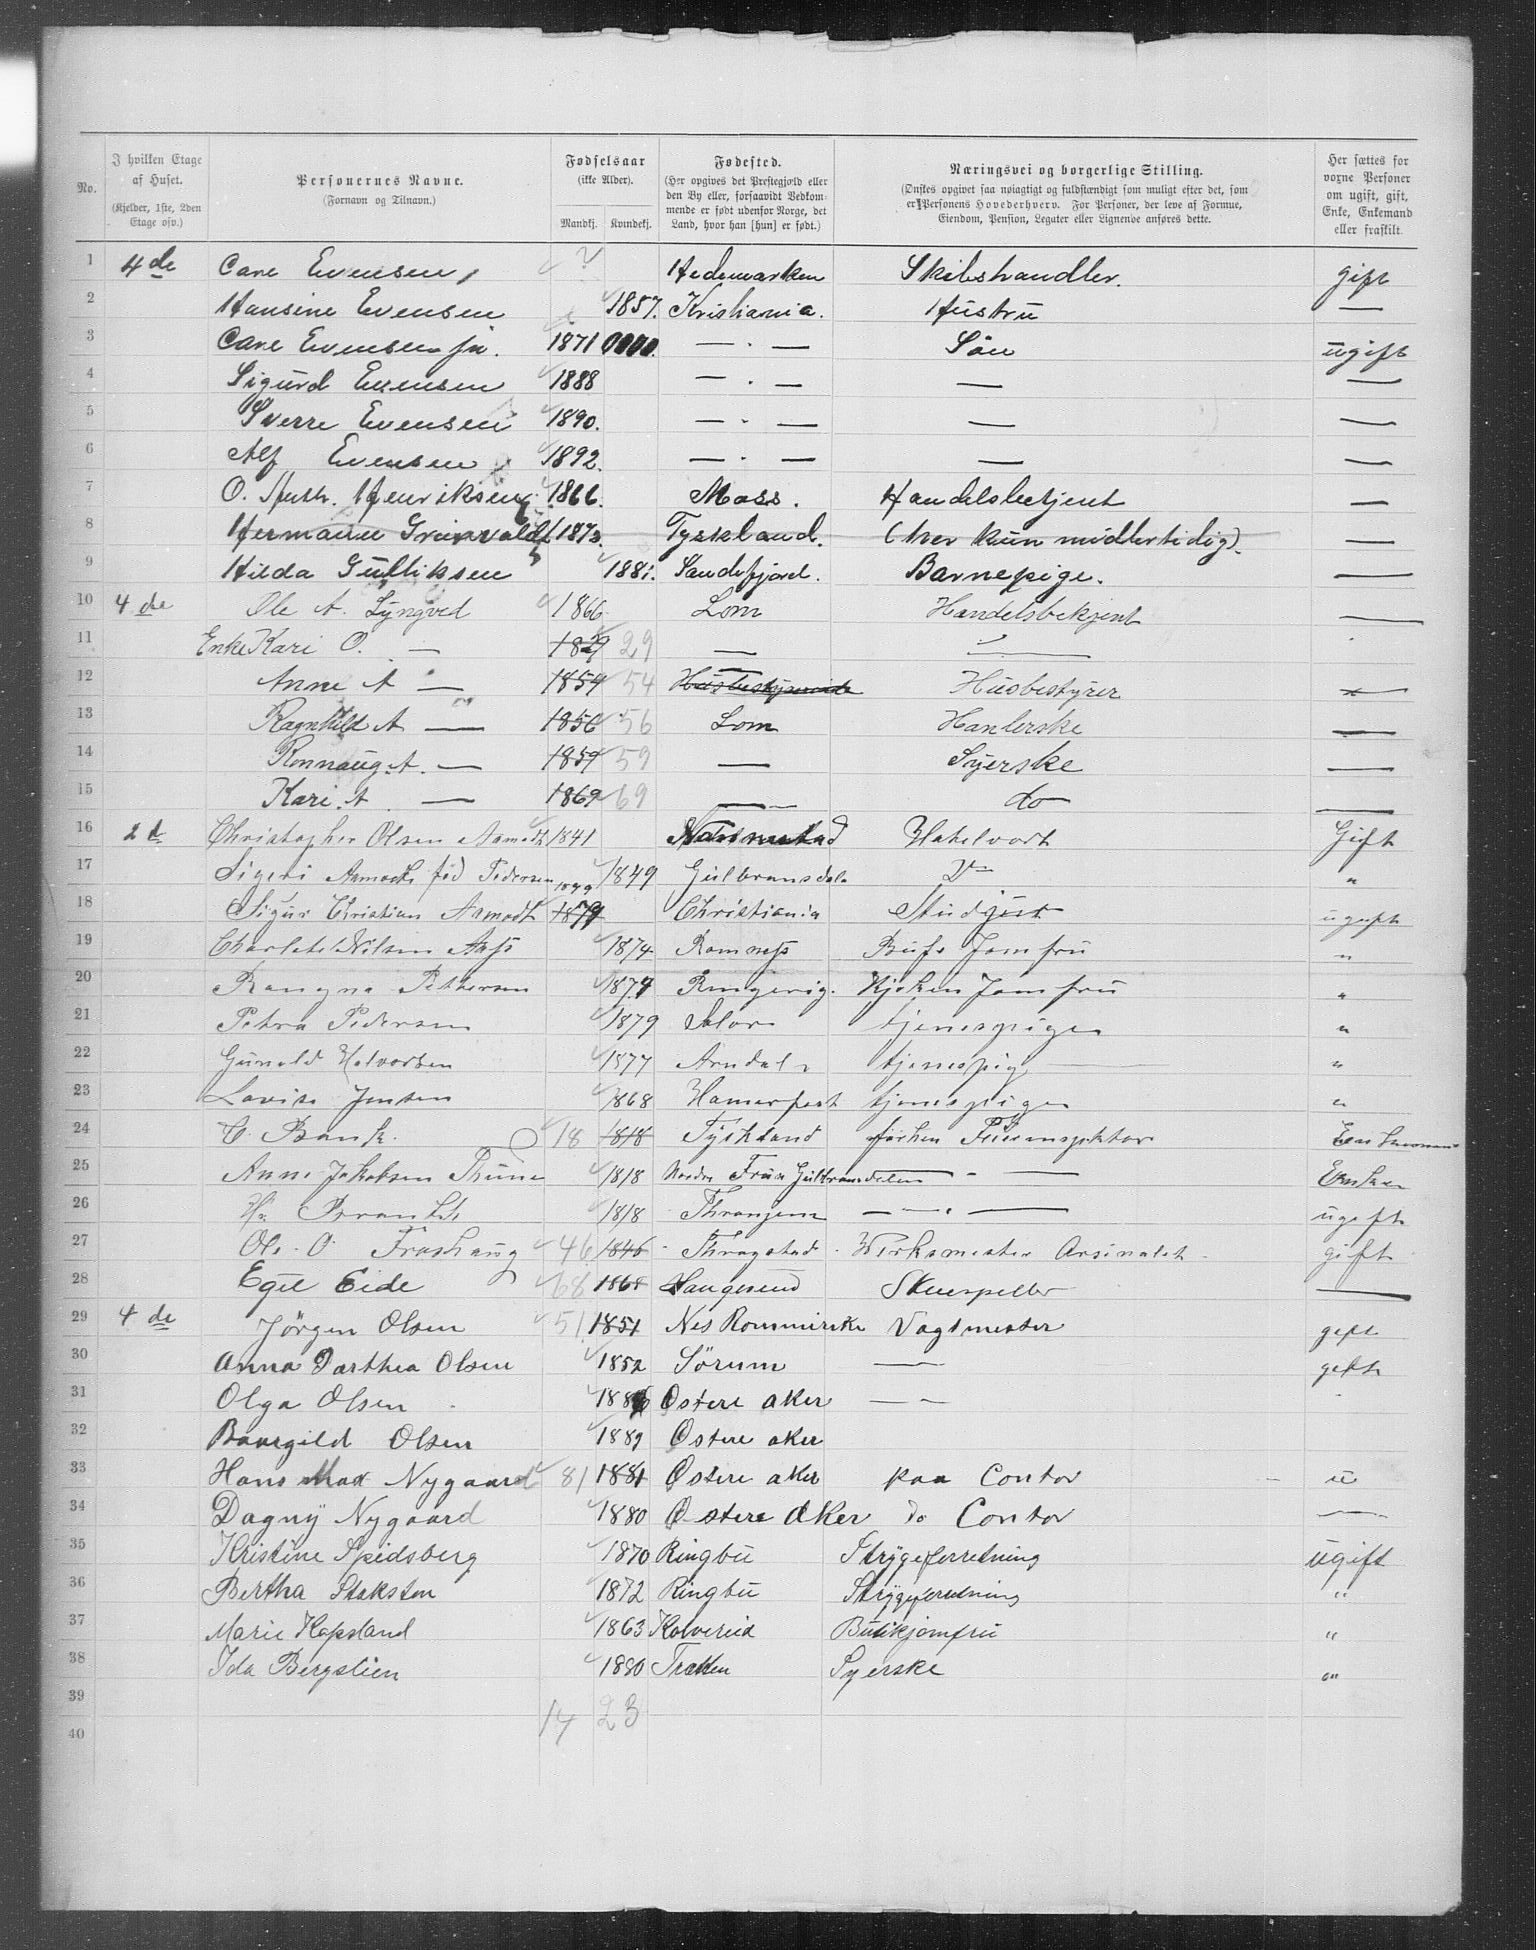 No. I hvilken Etage af Huset. (Kjelder, 1ste, 2den Etage osv.) Personernes Navne. (Fornavn og Tilnavn.) Fødselsaar (ikke Alder). Mandkj. Kvindekj. Fødested. (Her opgives det Prestegjeld eller den By eller, forsaavidt Vedkommende er født udenfor Norge, det Land, hvor han [hun] er født.) Næringsvei og borgerlige Stilling. (Ønskes opgivet saa nøiagtigt og fuldstændigt som muligt efter det, som er Personens Hovederhverv. For Personer, der leve af Formue, Eiendom, Pension, Legater eller Lignende anføres dette. Her sættes for voxne Personer om ugift, gift, Enke, Enkemand eller fraskilt.
1 4de Carl Evensen, ? Hedemarken Skibshandler. gift
2 Hansine Evensen 1857. Kristiania. Hustru —
3 Carl Evensen jr. 1871 — . — Sön ugift
4 Sigurd Evensen 1888 — . — — —
5 Sverre Evensen 1890. — . — — —
6 Alf Evensen 1892. — . — — —
7 O. Henriksen 1866. Moss. Handelsbetjent —
8 Hermann Grünvaldt 1873. Tyskland. (her kun midlertidig). —
9 Hilda Gulliksen 1881. Sandefjord. Barnepige. —
10 4de Ole A. Lyngved 1866 Lom Handelsbetjent —
11 Enke Kari O. — 1829 29 — —
12 Anne A — 1854 54 Husbestyrerinde Husbestyrer —
13 Ragnhild A — 1856 56 Lom Hanlerske —
14 Ronnaug. A. — 1859 59 — Syerske —
15 Kari. A. — 1869 69 — do —
16 2d Christopher Olsen Asmodt 1841 Hotelvert Gift
17 Sigeri Asmodt föd Pedersen 1849 Gulbransdale Do "
18 Sigur Christian Asmodt 1879 1879 Christiania Student ugift
19 Nilsen 1874 Romnejs Bufe Jomfru "
20 Rangna Pettersen 1874 Ringerig. Kjøken Jomfru "
21 Petra Pedersen 1879 Solør tjenespige "
22 Gunuld Halvorsen 1877 Arndal tjenespige "
23 Lovise Jensen 1868 Hamerfest tjenespige "
24 18 1818 Tyskland Enkemand
25 Anne Jakobsen 1818 Nordre Fron Gulbransdalen — - — Enken
26 1818 Thronjem — - — ugift
27 Ole O. Froshaug 46 1846 Thrøgstad Verksmester Arsinalet gift
28 Egil Eide 68 1868 Haugesund Skuespeller —
29 4de Jörgen Olsen 51 1851 Nes Rommirike Vagtmester gift
30 Anna Dorthea Olsen 1852 Sörum — gift
31 Olga Olsen 1886 Østere aker — -
32 Borgild Olsen 1889 Østere aker
33 Hans Max Nygaard 81 1881 Østere aker paa Contor u
34 Dagny Nygaard 1880 Østere Aker Do Contor —
35 Kristine Speidsberg 1870 Ringbu Strygeforretning ugift
36 Bertha Stakston 1872 Ringbu Strygeforretning "
37 Marie Hopsland 1863 Kolvereid Butikjomfru "
38 Ida Bergstien 1880 Tratten Syerske "
39
40 14 23